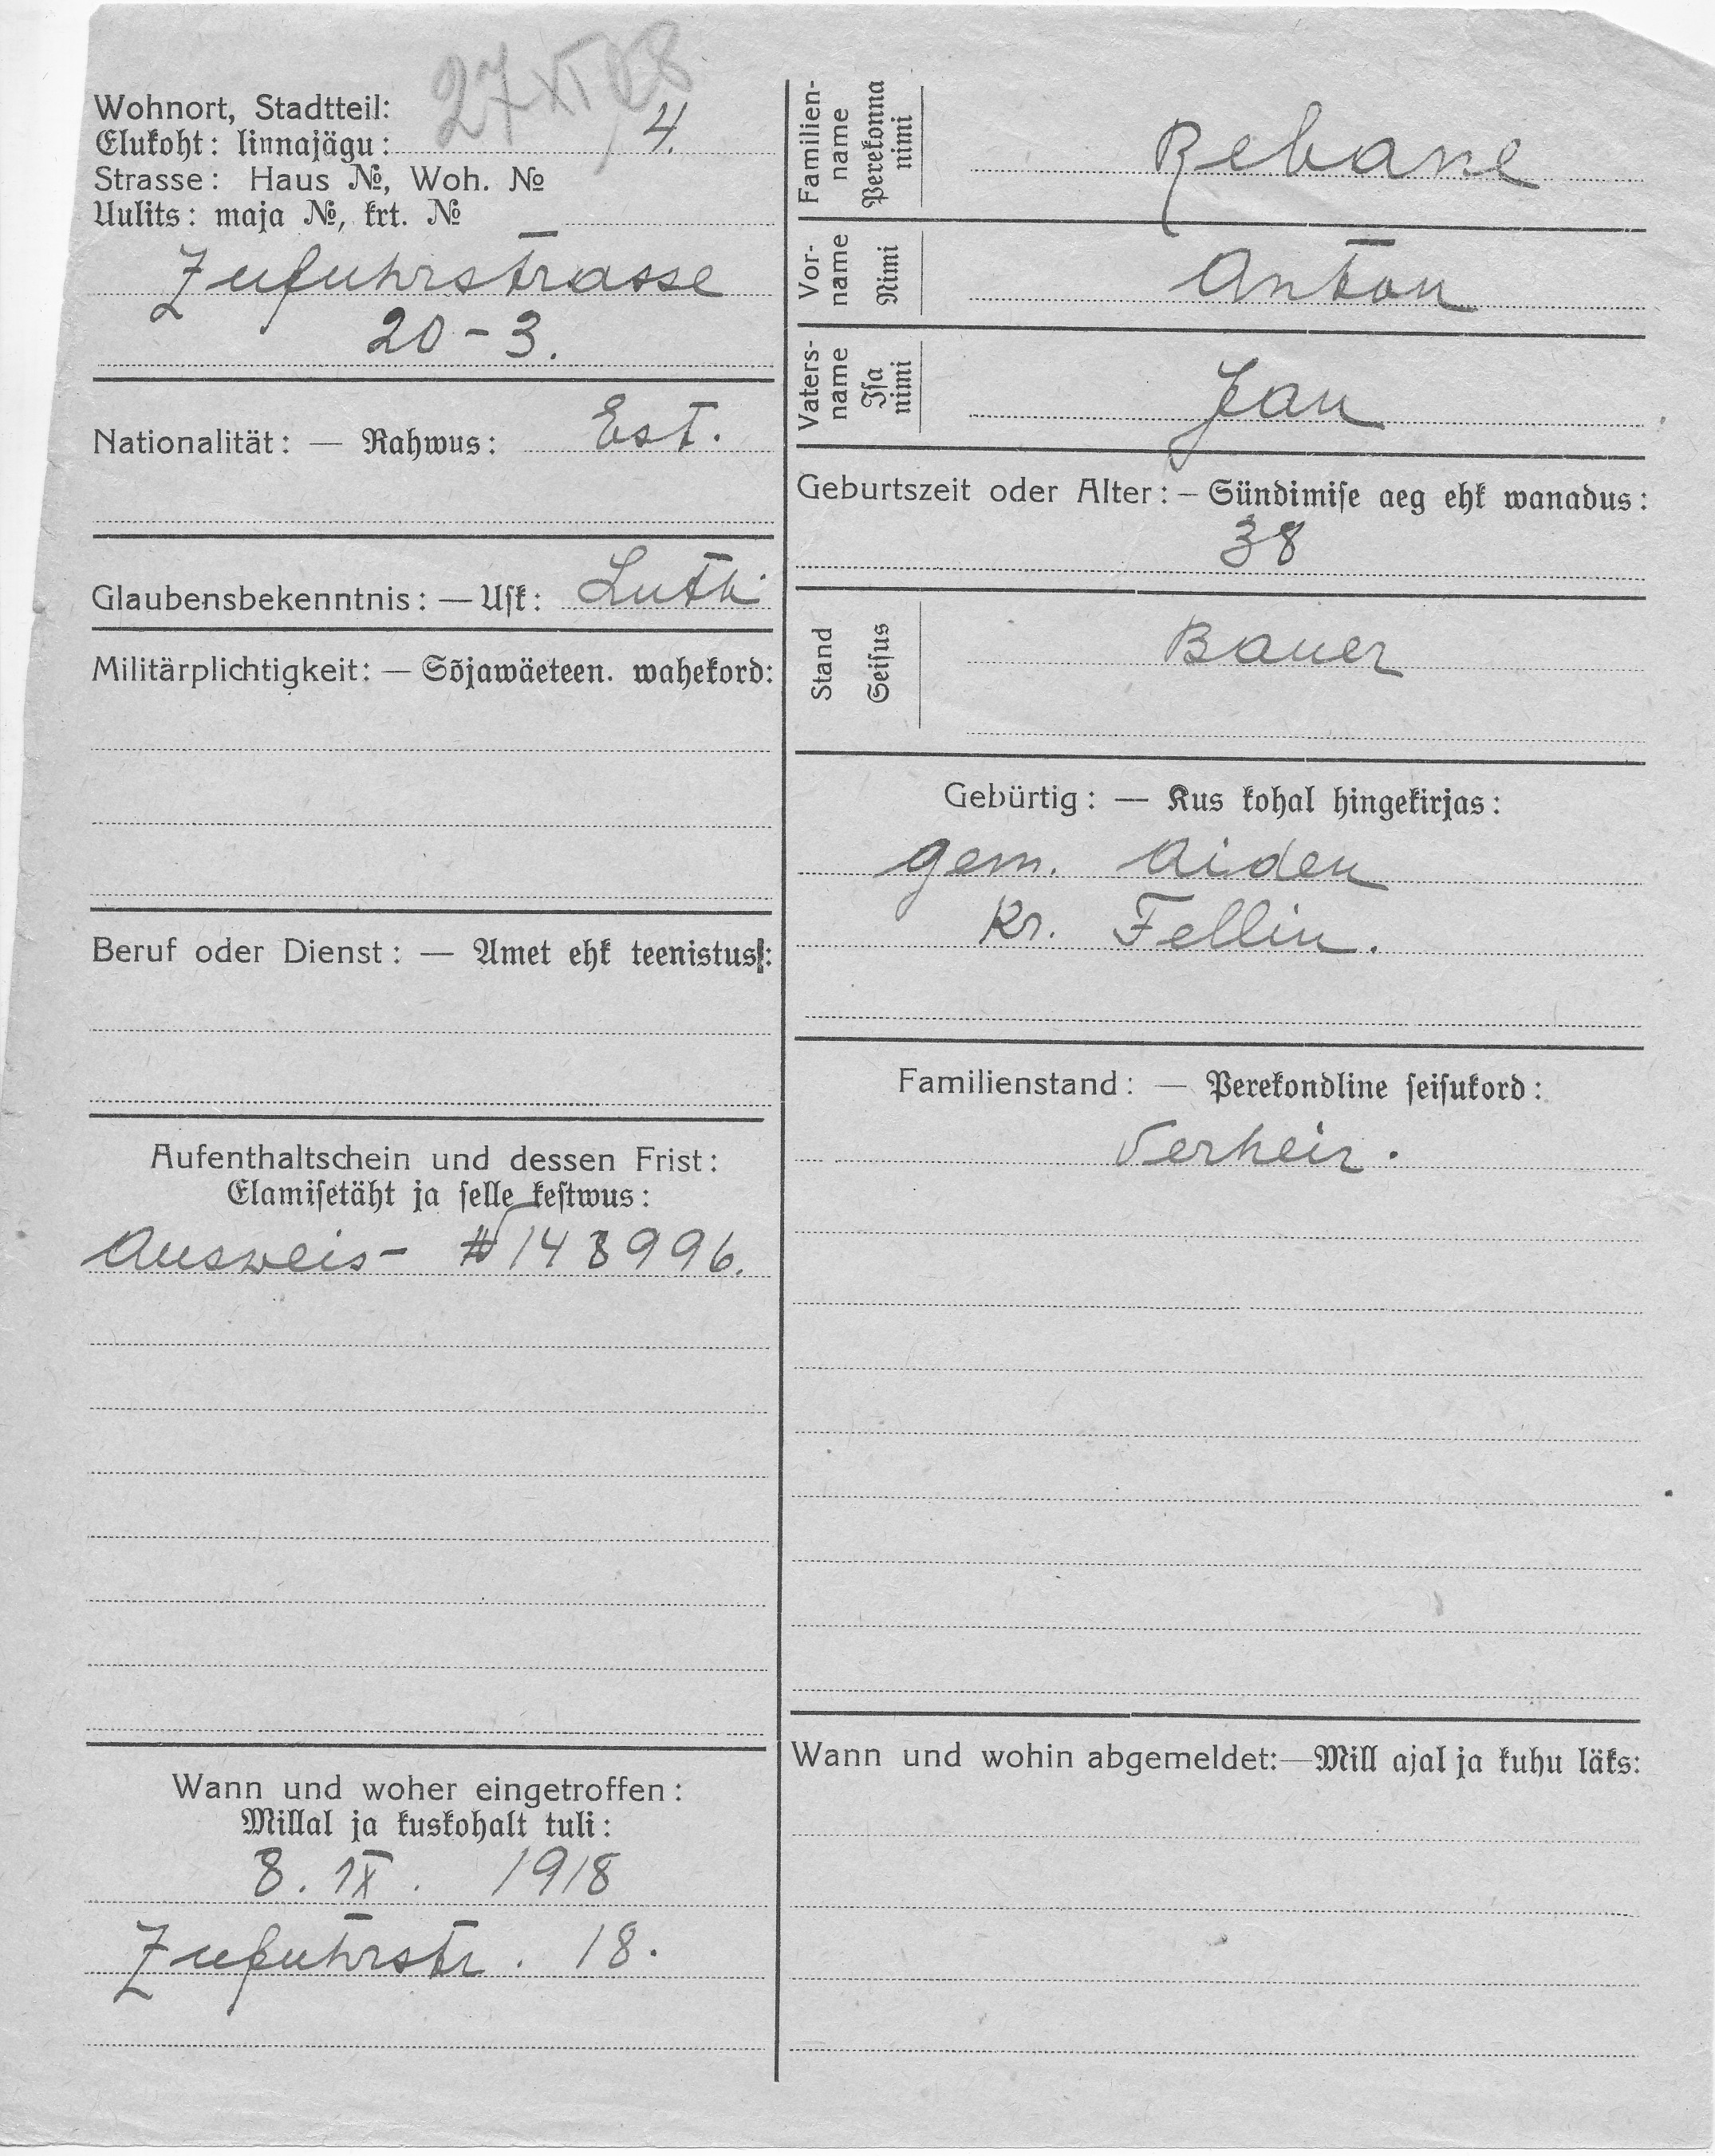 27 XI 18
Wohnort, Stadtteil:
Elukoht: linnajägu: 4.
Strasse: Haus №, Woh. №
Uulits: maja №, krt. №
Zufuhrstrasse
20 - 3.
Nationalität: — Rahwus: Est.
Glaubensbekenntnis: — Usk: Luth.
Militärplichtigkeit: — Sõjawäeteen. wahekord:
Beruf oder Dienst: — Amet ehk teenistus:
Aufenthaltschein und dessen Frist:
Elamisetäht ja selle kestwus:
Ausweis - # 148996.
Wann und woher eingetroffen:
Millal ja kuskohalt tuli:
8. IX. 1918
Zufuhrstr. 18.
Familien-
name
Perekonna
nimi
Rebane
Vor-
name
Nimi
Anton
Vaters-
name
Isa
nimi
Jan
Geburtszeit oder Alter: – Sündimise aeg ehk wanadus:
38
Stand
Seisus
Bauer
Gebürtig: — Kus kohal hingekirjas:
gem. Aiden
Kr. Fellin.
Familienstand: — Perekondline seisukord:
Verheir.
Wann und wohin abgemeldet: — Mill ajal ja kuhu läks: